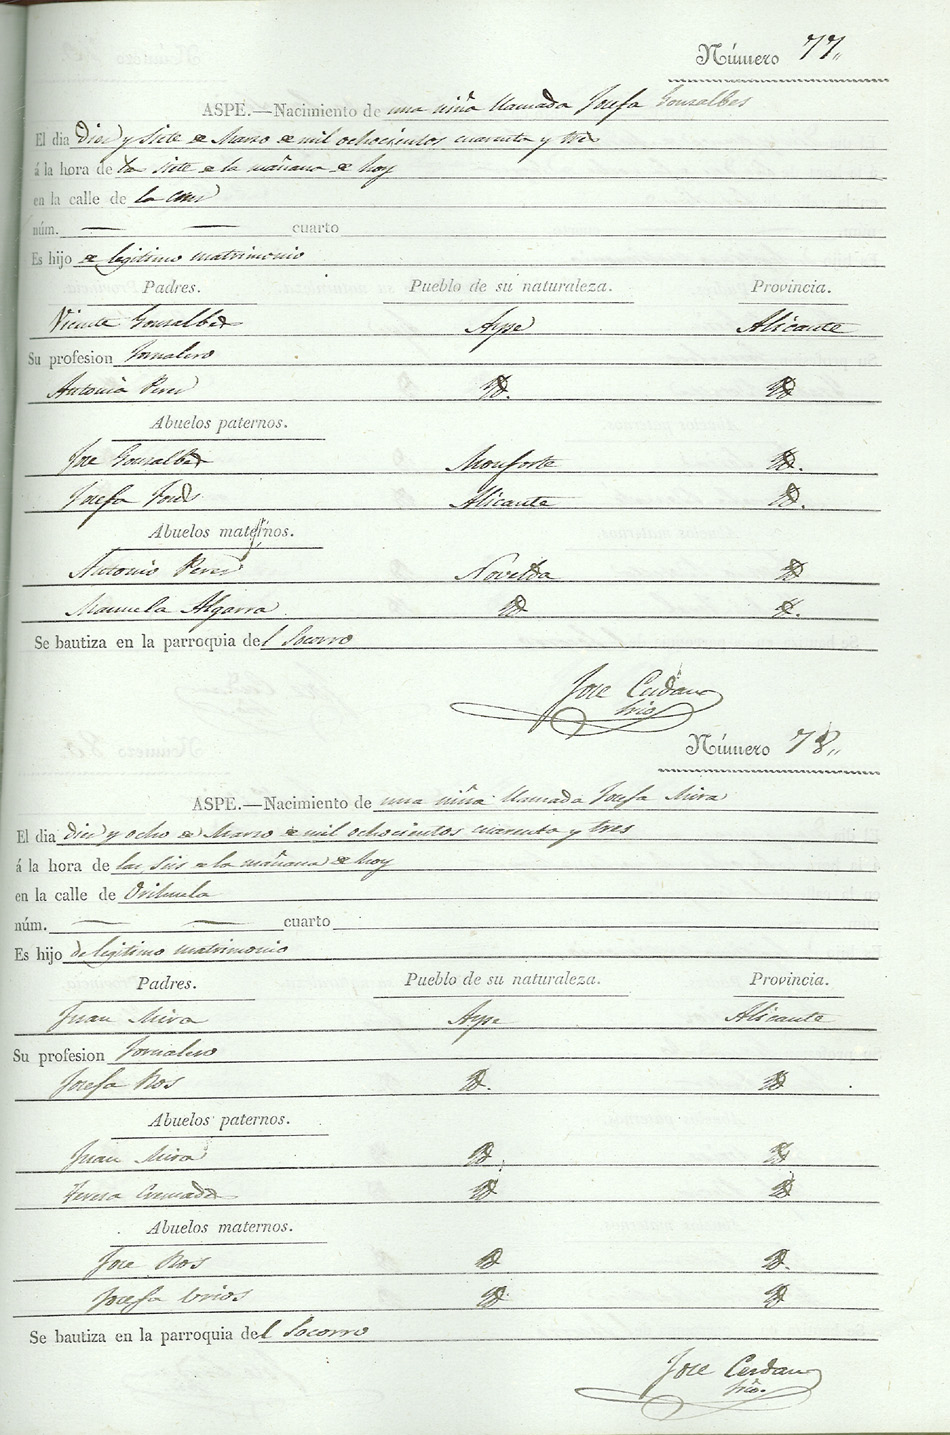 Número 77.,
ASPE.—Nacimiento de una niña llamada Josefa Gonzalbes
El dia Diez y Siete de Marzo de mil ochocientos cuarenta y tres
á la hora de las siete de la mañana de hoy
en la calle de la Cruz
núm. — — cuarto
Es hijo de legitimo matrimonio
Padres. Pueblo de su naturaleza. Provincia.
Vicente Gonzalbes Aspe Alicante
Su profesion Jornalero
Antonia Perez Yd. Yd.
Abuelos paternos.
Jose Gonzalbes Monforte Yd.
Josefa Alicante Yd.
Abuelos maternos.
Antonio Perez Novelda Yd.
Manuela Algarra Yd. Yd.
Se bautiza en la parroquia del Socorro
Jose Cerdan
Srio
Número 78.,
ASPE.—Nacimiento de una niña llamada Josefa Mira
El dia diez y ocho de Marzo de mil ochocientos cuarenta y tres
á la hora de las seis de la mañana de hoy
en la calle de Orihuela
núm. — — cuarto
Es hijo de legitimo matrimonio
Padres. Pueblo de su naturaleza. Provincia.
Juan Mira Aspe Alicante
Su profesion Jornalero
Josefa Ros Yd. Yd.
Abuelos paternos.
Juan Mira Yd. Yd.
Teresa Cremades Yd. Yd.
Abuelos maternos.
Jose Ros Yd. Yd.
Josefa Yd. Yd.
Se bautiza en la parroquia del Socorro
Jose Cerdan
Srio.